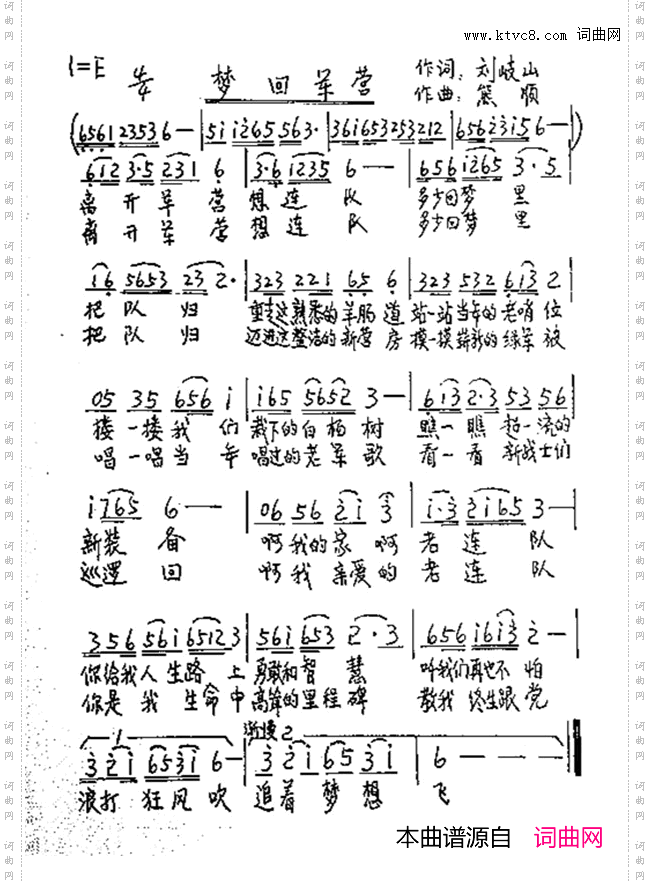 www.ktvc8.com 词曲网
1=E 梦回军营 作词：刘岐山
作曲：熊 顺
(6561 2353 6— | 51 1265 563· | 361653 253212 | 656 23156—)
612 3·5 231 6 | 3·6 1235 6—— | 656 1265 3·5
离开军营想连队 多少回梦里
离开军营想连队 多少回梦里
16 5653 23 2· | 323 221 65 6 | 323 532 613 2
把队归 重走这熟悉的羊肠道 站一站当年的老哨位
把队归 迈进这整洁的新营房 摸一摸崭新的绿军被
05 35 656 1 | 165 5652 3— | 613 2·3 53 56
搂一搂我们栽下的白杨树 瞧一瞧超一流的
唱一唱当年唱过的老军歌 看一看新战士们
1765 6—— | 06 56 21 3 | 1·3 2165 3—
新装备 啊我的家啊老连队
巡逻回 啊我亲爱的老连队
356 561 6512 3 | 561 653 2·3 | 656 1613 2—
你给我人生路上勇敢和智慧 叫我们再也不怕
你是我生命中高耸的里程碑 教我终生跟党
1 渐慢2
321 6531 6— | 321 65 31 | 6———
浪打狂风吹 追着梦想飞
本曲谱源自 词曲网
词曲网